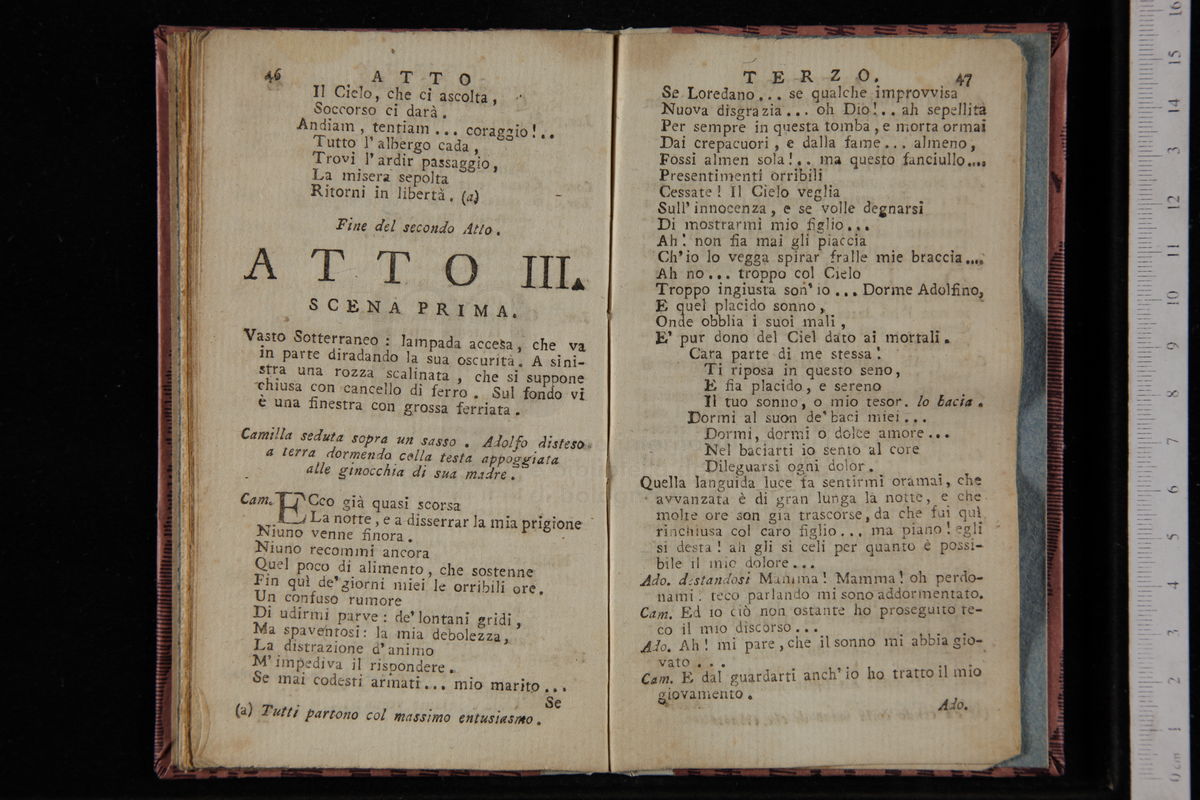 46 ATTO
Il Cielo, che ci ascolta,
Soccorso ci darà.
Andiam, tentiam... coraggio!..
Tutto l'albergo cada,
Trovi l'ardir passaggio,
La misera sepolta
Ritorni in libertà. (a)
Fine del secondo Atto.
ATTO III.
SCENA PRIMA.
Vasto Sotterraneo: lampada accesa, che va
in parte diradando la sua oscurità. A sini-
stra una rozza scalinata, che si suppone
chiusa con cancello di ferro. Sul fondo vi
è una finestra con grossa ferriata.
Camilla seduta sopra un sasso. Adolfo disteso
a terra dormendo colla testa appoggiata
alle ginocchia di sua madre.
Cam. ECco già quasi scorsa
La notte, e a disserrar la mia prigione
Niuno venne finora.
Niuno recommi ancora
Quel poco di alimento, che sostenne
Fin quì de' giorni miei le orribili ore.
Un confuso rumore
Di udirmi parve: de' lontani gridi,
Ma spaventosi: la mia debolezza,
La distrazione d'animo
M'impediva il rispondere.
Se mai codesti armati... mio marito...
Se
(a) Tutti partono col massimo entusiasmo.
TERZO. 47
Se Loredano... se qualche improvvisa
Nuova disgrazia... oh Dio!.. ah sepellita
Per sempre in questa tomba, e morta ormai
Dai crepacuori, e dalla fame... almeno,
Fossi almen sola!.. ma questo fanciullo....
Presentimenti orribili
Cessate! Il Cielo veglia
Sull'innocenza, e se volle degnarsi
Di mostrarmi mio figlio...
Ah! non fia mai gli piaccia
Ch'io lo vegga spirar fralle mie braccia....
Ah no... troppo col Cielo
Troppo ingiusta son' io... Dorme Adolfino,
E quel placido sonno,
Onde obblia i suoi mali,
E' pur dono del Ciel dato ai mortali.
Cara parte di me stessa!
Ti riposa in questo seno,
E fia placido, e sereno
Il tuo sonno, o mio tesor. lo bacia.
Dormi al suon de' baci miei...
Dormi, dormi o dolce amore...
Nel baciarti io sento al core
Dileguarsi ogni dolor.
Quella languida luce fa sentirmi oramai, che
avvanzata è di gran lunga la notte, e che
molte ore son già trascorse, da che fui quì
rinchiusa col caro figlio... ma piano! egli
si desta! ah gli si celi per quanto è possi-
bile il mio dolore...
Ado. destandosi Mamma! Mamma! oh perdo-
nami: teco parlando mi sono addormentato.
Cam. Ed io ciò non ostante ho proseguito te-
co il mio discorso...
Ado. Ah! mi pare, che il sonno mi abbia gio-
vato...
Cam. E dal guardarti anch'io ho tratto il mio
giovamento.
Ado.
0 cm 1 2 3 4 5 6 7 8 9 10 11 12 13 14 15 16